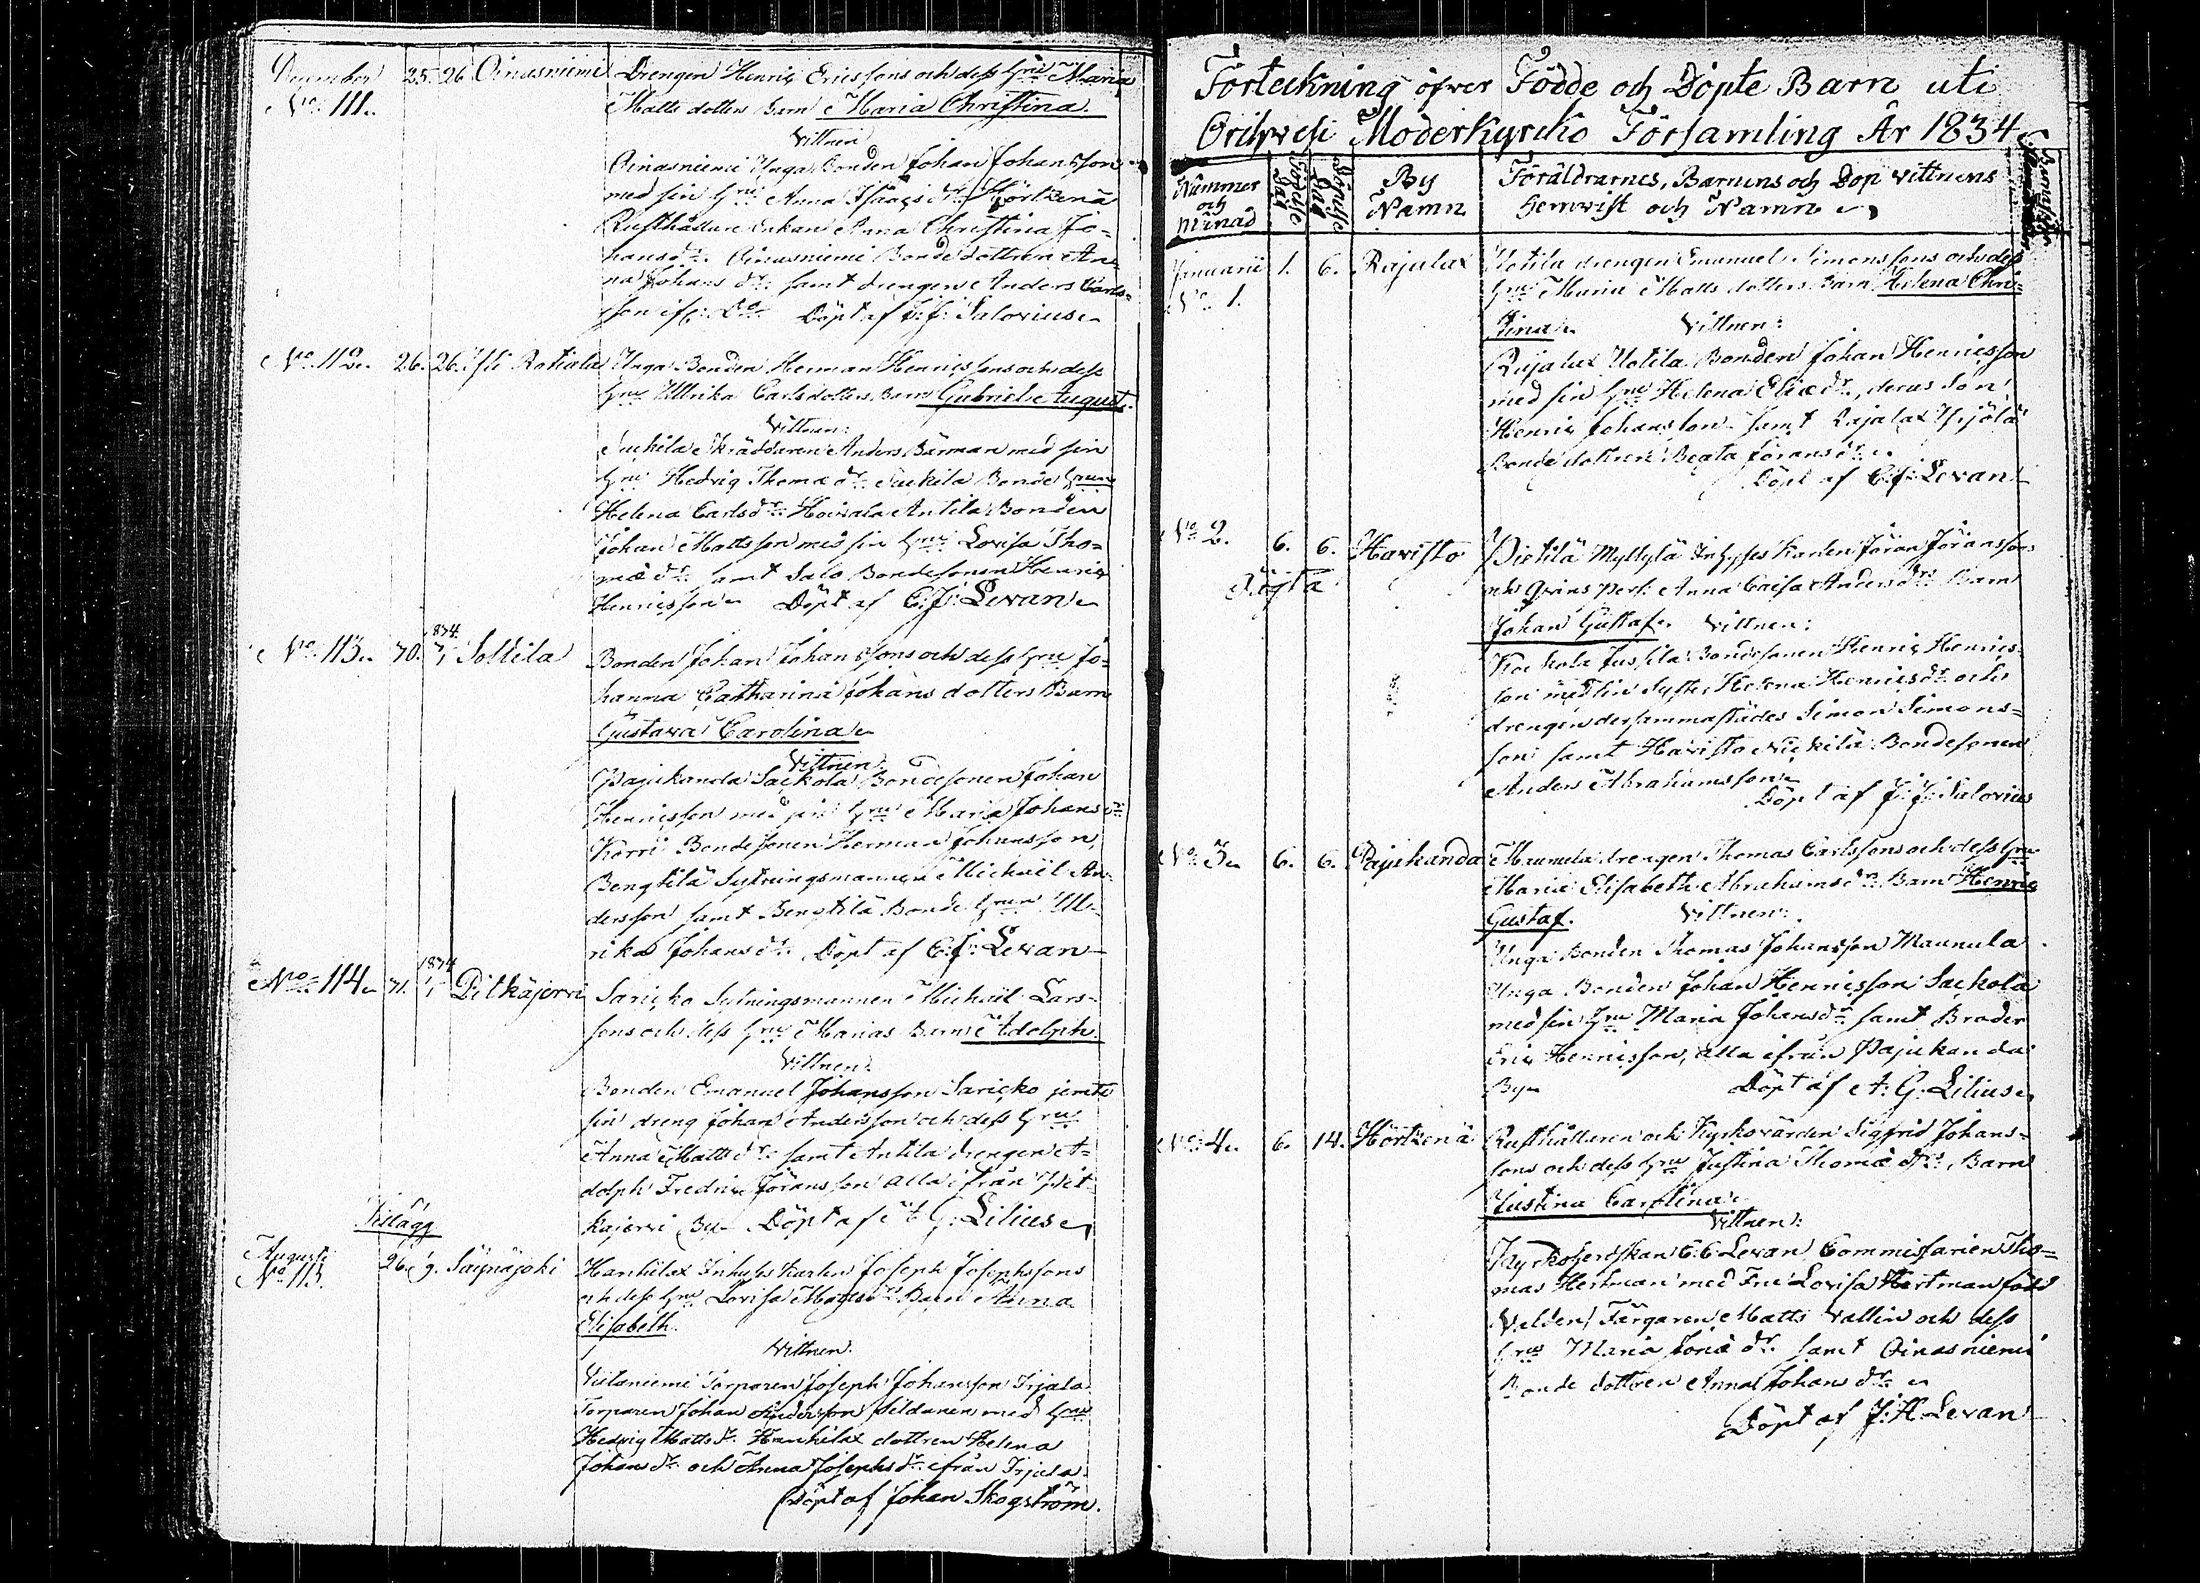 December 25. 26 Oinasniemi Drengen Henric Ericssons och dess Hru Maria
No 111. Matts dotters Barn Maria Christina.
Vittnen
Oinasniemi Unga Bonden Johan Johansson
med sin Hru Anna Isaacs dr Hörtzenä
Rusthållare Enkan Anna Christina Jo=
hansdr. Oinasniemi Bonde dottren An=
na Johans dr samt drengen Anders Carls=
son
Döpt af J: J: Salovius
No 112. 26. 26. Rotiala Unga Bonden Herman Henricssons och dess
Hru Ullrika Carlsdotters Barn Gabriel August.
Vittnen:
Suckila Skräddaren Anders Bärman med sin
Hru Hedvig Thomæ dr Suckila Bonde Hrun
Helena Carlsdr Hoivala Antila Bonden
Johan Mattsson med sin Hru Lovisa Tho=
mæ dr samt Salo Bondesonen Henric
Henricsson Döpt af C: J: Levan
No 113. 30. 1834 Sottila Bonden Johan Johanssons och dess Hru Jo=
hanna Catharina Johans dotters Barn
Gustava Carolina
Vittnen
Pajukanda Sackola Bondesonen Johan
Henricsson med sin Hru Maria Johansdr
Korri Bondesonen Herman Johansson,
Bengtilä Sytningsmannen Michaël An=
dersson samt Bengtilä Bonde Hrun Ull=
rika Johansdr Döpt af C: J: Levan
No 114. 31. 1834 1/1 Pitkäjervi Saricko Sytningsmannen Michaël Lars=
sons och dess Hru Marias Barn Adolph.
Vittnen:
Bonden Emanuel Johansson Saricko jemte
sin dreng Johan Andersson och dess Hru
Anna Matts dr samt Antila drengen A=
dolph Fredric Jöransson alla ifrån Pit
kajervi By Döpt af A: G: Lilius
Tillägg
Augusti
No 115. 26. 9. Säynäjoki Hanhilax Inhyses Karlen Joseph Josephssons
och dess Hru Lovisa Barn Anna
Elisabeth.
Vittnen.
Torparen Joseph Johansson Irjala
Torparen Johan Andersson med Hru
Hedvig Mattsdr. Hanhilax dottren Helena
Johansdr och Anna Josephsdr ifrån Irjala.
Döpt af Johan Skogström.
Förteckning öfver Födde och Döpte Barn uti
Orihvesi Moderkyrko Församling År 1834
Nummer
och
Månad
Födelse
Dag
Döpelse
Dag
By
Namn
Föräldrarnes, Barnens och Dop vittnens
Hemvist och Namn
Januarii 1. 6. Rajalax Uotila drengen Emanuel Simonssons och dess
No 1. Hru Maria Matts dotters Barn Helena Chri=
stina Vittnen:
Rajalax Uotila Bonden Johan Henricsson
med sin Hru Helena Eliædr, deras Son
Henric Johansson samt Rajalax Yrjölä
Bonde dottren Beata Jöransdr
Döpt af C: J: Levan
No 2. 6. 6. Havisto Pietilä Myllylä Inhyses Karlen Jöran Jöransson
Oägta och Qvins Pers. Anna Caisa Andersdrs Barn
Johan Gustaf. Vittnen:
Jussila Bondesonen Henric Henrics=
son med sin Syster Helena Henricsdr och
drengen dersammastädes Simon Simons=
son samt Havisto Nickilä Bondesonen
Anders Abrahamsson
Döpt af J: J: Salovius
No 3 6. 6. Pajukanda Maunula drengen Thomas Carlssons och dess Hru
Maria Elisabeth Abrahamsdrs Barn Henric
Gustaf. Vittnen:
Unga Bonden Thomas Johansson Maunula
Unga Bonden Johan Henricsson Sackola
med sin Hru Maria Johansdr samt Broder
Eric Henricsson, alla ifrån Pajukanda
By Döpt af A: G: Lilius
No 4. 6. 14. Hörtzenä Rusthållaren och Kyrkovärden Sigfrid Johans=
sons och dess Hru Justina Thomæ drs, Barn
Justina Carolina
Vittnen:
Kyrkoherdskan C: C Levan Commissarien Tho=
mas Hertman med Fru Lovisa Hertman född
Velden, Färgaren Matts Vallin och dess
Hru Maria Jonæ dr samt Oinasniemi
Bonde dottren Anna Johans dr
Döpt af J: H: Levan